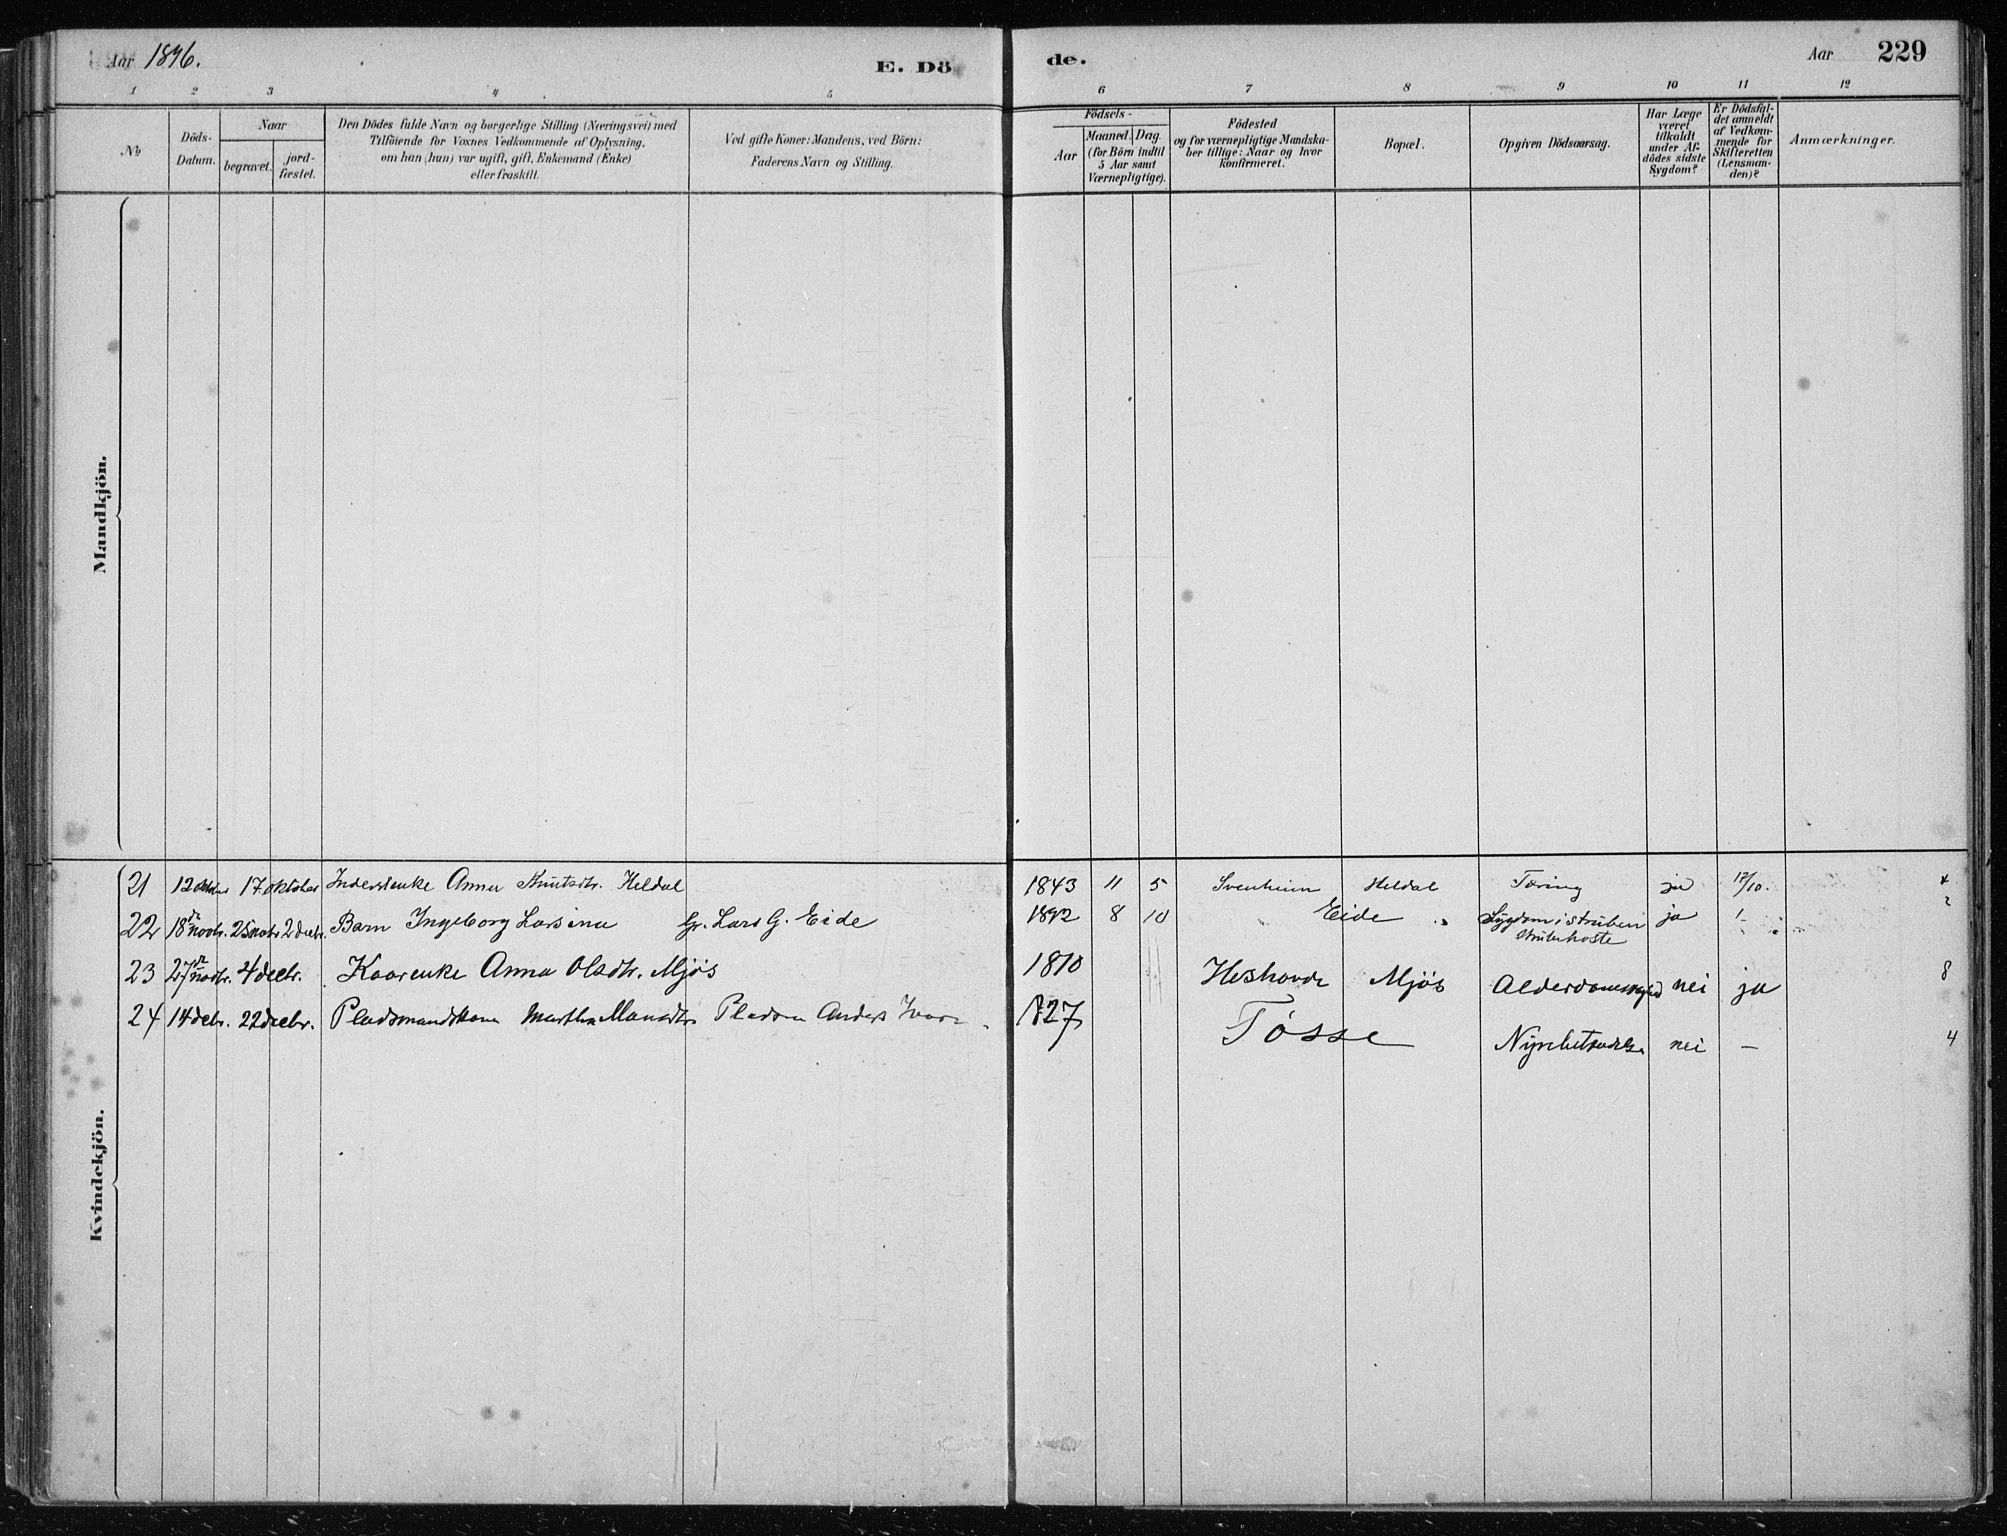 Aar 1896.
E. Dö
de.
Aar 229
1 2 3 4 5 6 7 8 9 10 11 12
No
Döds-
Datum.
Naar
begravet.
jord-
fæstet.
Den Dödes fulde Navn og borgerlige Stilling (Næringsvei) med
Tilföiende for Voxnes Vedkommende af Oplysning,
om han (hun) var ugift, gift, Enkemand (Enke)
eller fraskilt.
Ved gifte Koner: Mandens, ved Börn:
Faderens Navn og Stilling.
Födsels-
Aar
Maaned. Dag.
(for Börn indtil
5 Aar samt
Værnepligtige).
Födested
og for værnepligtige Mandska-
ber tillige: Naar og hvor
konfirmeret.
Bopæl.
Opgiven Dödsaarsag.
Har Læge
været
tilkaldt
under Af-
dödes sidste
Sygdom?
Er Dödsfal-
det anmeldt
af Vedkom-
mende for
Skifteretten
(Lensman-
den)?
Anmærkninger.
Mandkjön.
Kvindekjön.
21 12 oktober 17 oktober Inderstenke Anna Knutsdtr. Heldal 1843 11 5 Svenheim Heldal Tæring ja 17/10.
22 18 novbr. 25 novbr 2 decbr. Barn Ingeborg Larsina Gr. Lars G. Eide 1892 8 10 Eide Sygdom i struben ja
Strubehoste
23 27 novbr. 4 decbr. Kaarenke Anna Olsdtr. Mjøs 1810 Heshovde Mjøs Alderdomssvaghed nei ja 8
24 14 debr. 22 decbr. Pladsmandskone Martha Monsdtr Pladsm Anders 1827 Tøsse nei — 4